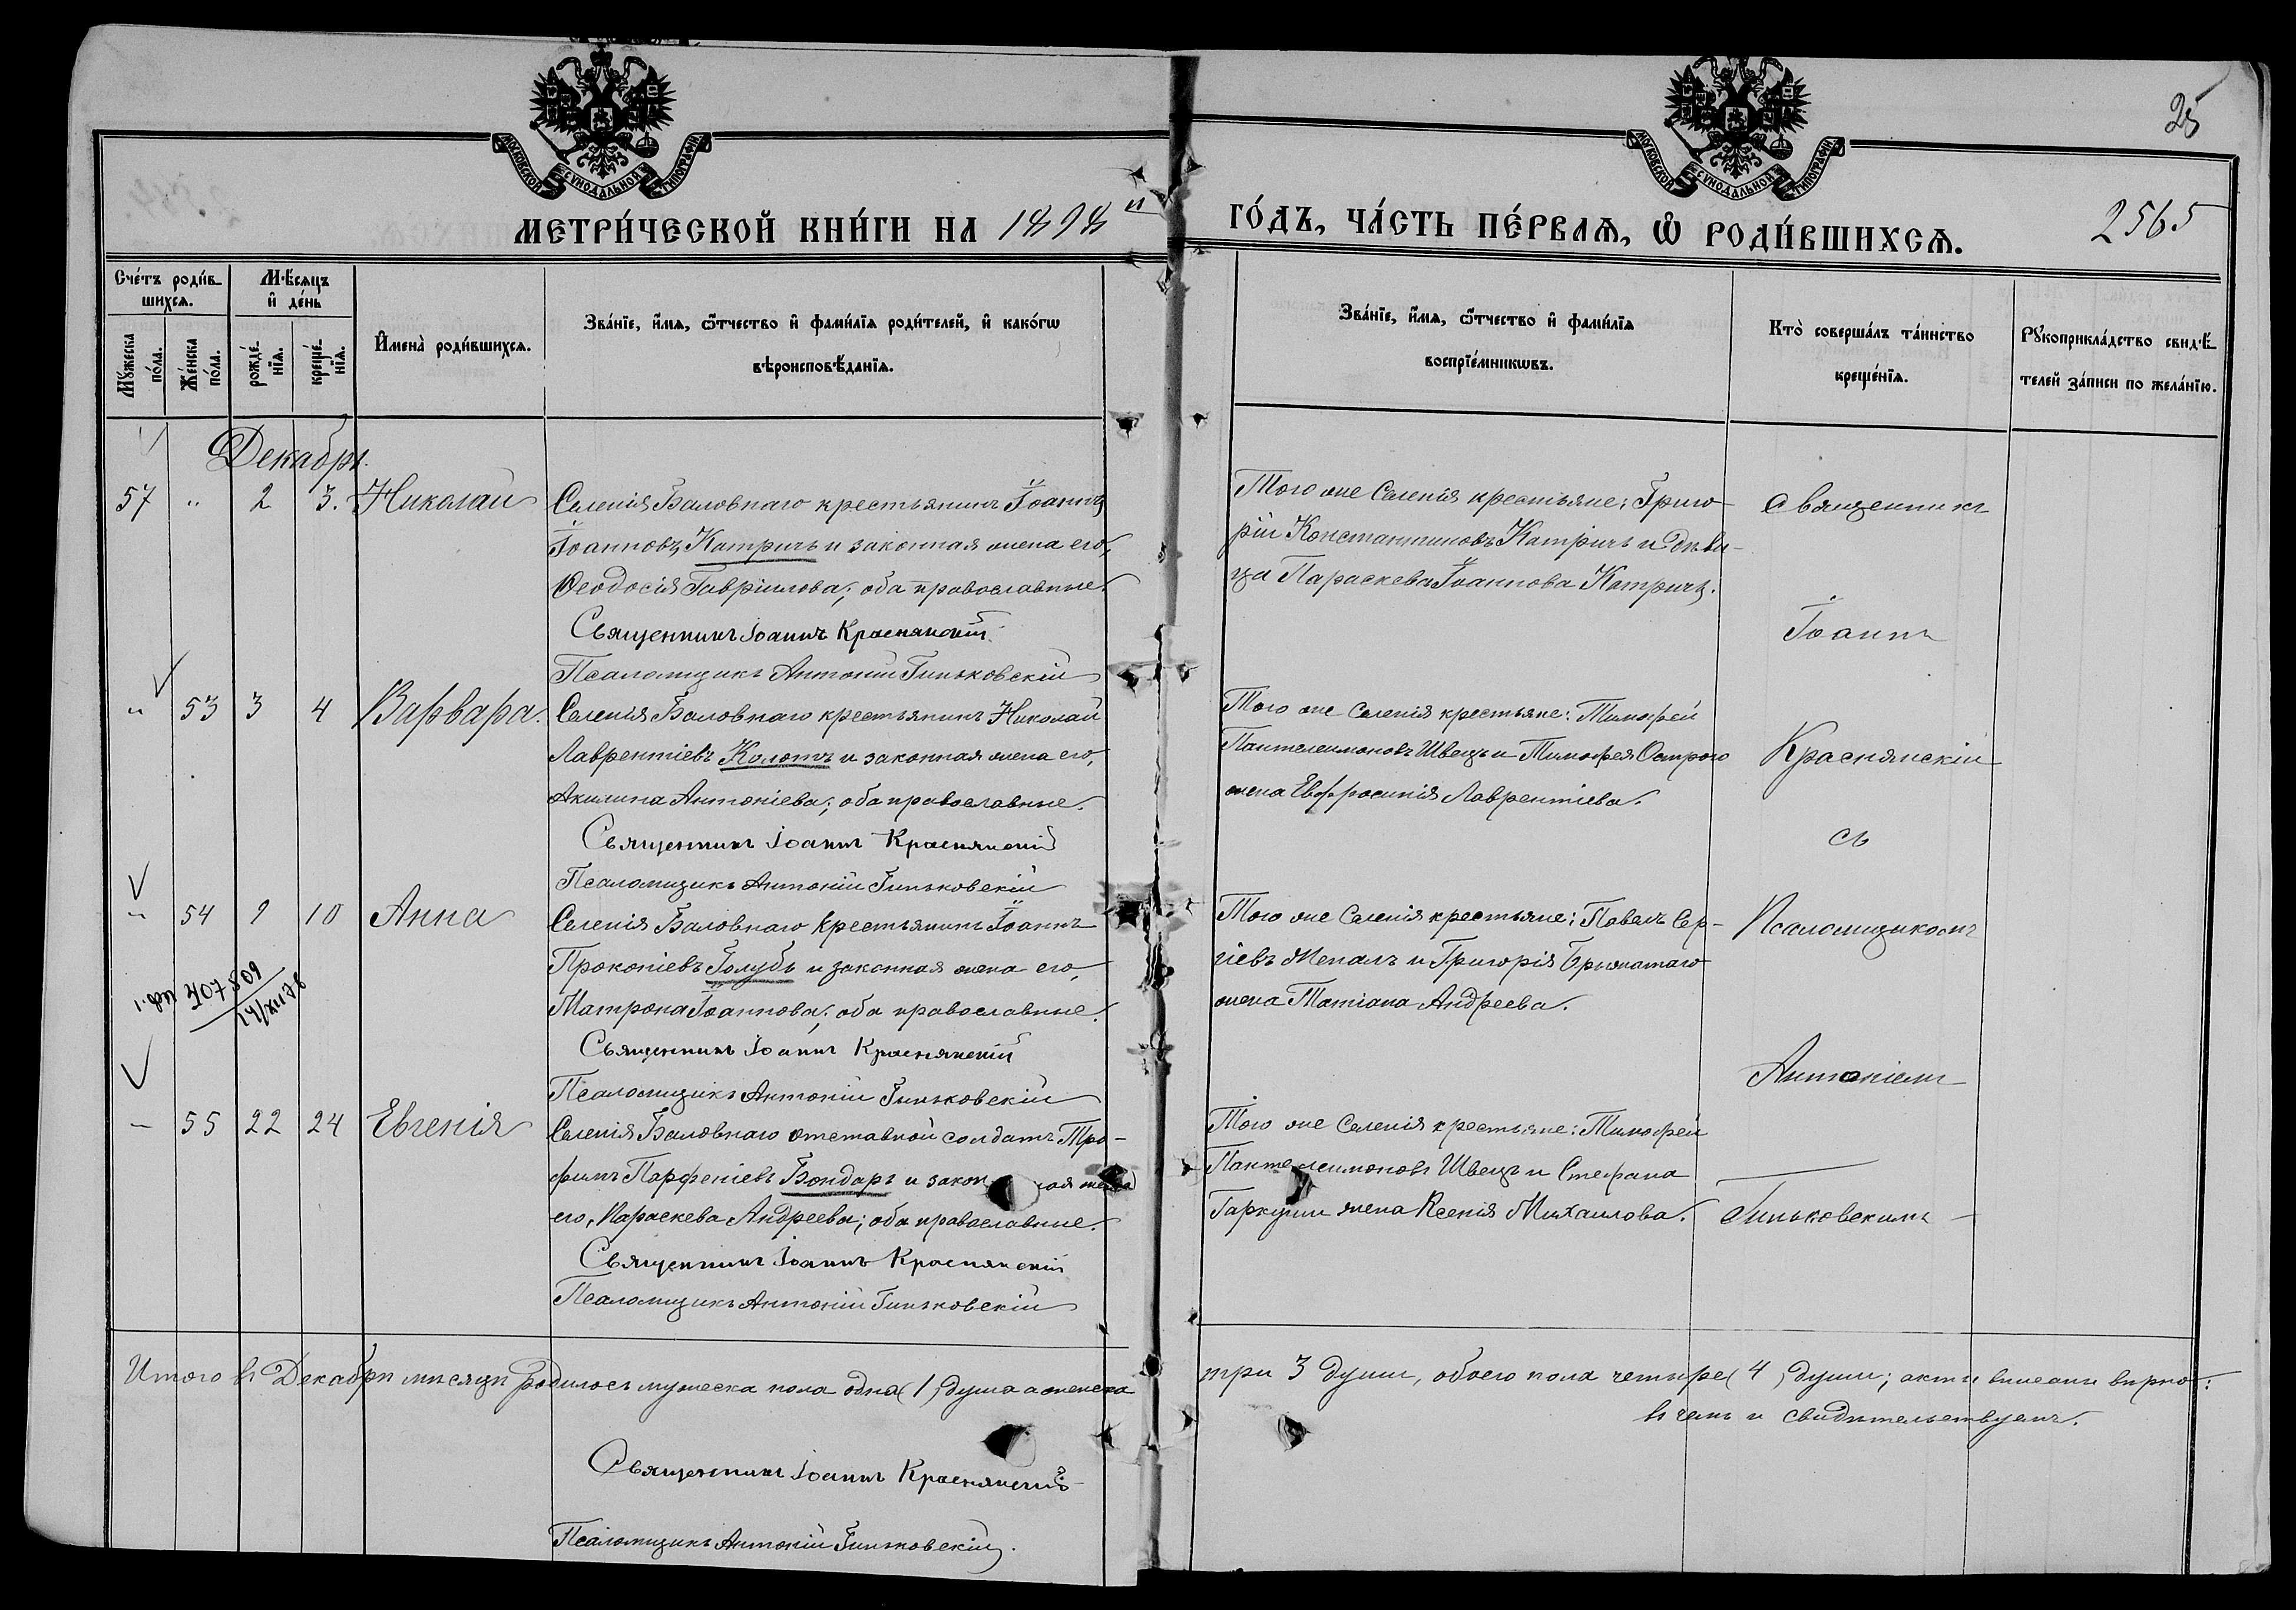 25
МОСКОВСКОЙ СѴНОДАЛЬНОЙ ТИПОГРАФІИ
МОСКОВСКОЙ СѴНОДАЛЬНОЙ ТИПОГРАФІИ
МЕТРИ́ЧЕСКОЙ КНИ́ГИ НА 1898 й ГО́ДЪ, ЧА́СТЬ ПЕ́РВАѦ, Ѽ РОДИ́ВШИХСѦ.
2565
Сче́тъ роди́в-
шихсѧ.
Мужеска по́ла.
Же́нска по́ла.
Мѣ́сяцъ
и҆ де́нь
рожде́нїѧ.
креще́нїѧ.
И҆мена̀ роди́вшихсѧ.
Зва́нїе, и҆́мѧ, ѻ҆́тчество и҆ фами́лїѧ роди́телей, и҆ како́гѡ
вѣроисповѣ́данїѧ.
Зва́нїе, и҆́мѧ, ѻ҆́тчество и҆ фами́лїѧ
воспрїе́мникѡвъ.
Кто̀ соверша́лъ та́инство
креще́нїѧ.
Рꙋкоприкла́дство свидѣ́-
телей за́писи по жела́нїю.
Декабрь
57 " 2 3. Николай
Селенія Баловнаго крестьянинъ Іоаннъ
Іоанновъ Катричъ и законная жена его,
Ѳеодосія Гавріилова; оба православные.
Священникъ Іоаннъ Краснянскій
Псаломщикъ Антоній Гиньковскій
Того же Селенія крестьяне: Григо-
рій Константиновъ Катричъ и дѣви-
ца Параскева Іоаннова Катричъ.
Священникъ
Іоаннъ
" 53 3 4 Варвара.
Селенія Баловнаго крестьянинъ Николай
Лаврентіевъ Колотъ и законная жена его,
Акилина Антоніева; оба православные.
Священникъ Іоаннъ Краснянскій
Псаломщикъ Антоній Гиньковскій
Того же Селенія крестьяне: Тимофей
Пантелеимоновъ Швецъ и Тимофея Острого
жена Евфросинія Лаврентіева.
Краснянскій
съ
" 54 9 10 Анна
Селенія Баловнаго крестьянинъ Іоаннъ
Прокопіевъ Голубь и законная жена его,
Матрона Іоаннова; оба православные.
Священникъ Іоаннъ Краснянскій
Псаломщикъ Антоній Гиньковскій
407809
Того же Селенія крестьяне: Павелъ Сер-
гіевъ и Григорія
жена Татіана Андреева.
Псаломщикомъ
Антоніемъ
– 55 22 24 Евгенія
Селенія Баловнаго отставной солдатъ Тро-
фимъ Парфеніевъ Бондарь и законная жена
его, Параскева Андреева; оба православные.
Священникъ Іоаннъ Краснянскій
Псаломщикъ Антоній Гиньковскій
Того же Селенія крестьяне: Тимофей
Пантелеимоновъ Швецъ и Стефана
Гаркуши жена Ксенія Михаилова.
Гиньковскимъ
Итого въ Декабрѣ мѣсяцѣ родилось мужеска пола одна (1) душа а женска три 3 души, обоего пола четыре (4) души; акты вписаны вѣрно:
въ чемъ и свидѣтельствуемъ.
Священникъ Іоаннъ Краснянскій
Псаломщикъ Антоній Гиньковскій.